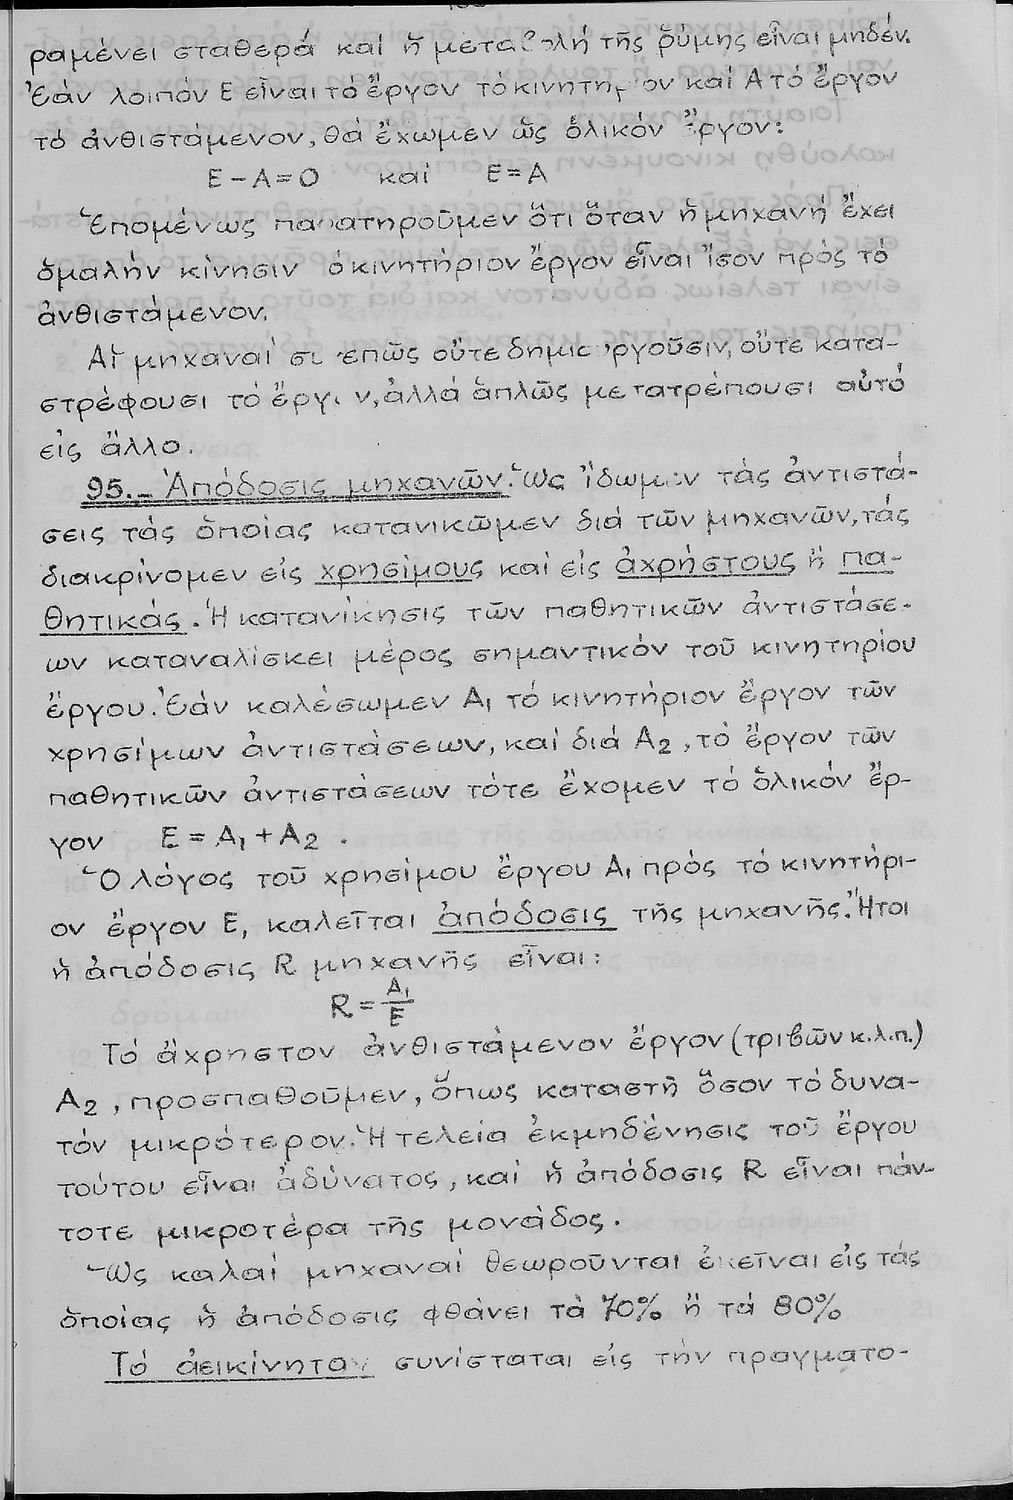 ραμένει σταθερά καί ἡ μεταβολή τῆς ῥύμης εἶναι μηδέν.
Ἐάν λοιπόν Ε εἶναι τό ἔργον τό κινητήριον καί Α τό ἔργον
τό ἀνθιστάμενον, θά ἔχωμεν ὡς ὁλικόν ἔργον:
Ε - Α = Ο καί Ε = Α
Ἑπομένως παρατηροῦμεν ὅτι ὅταν ἡ μηχανή ἔχει
ὁμαλήν κίνησιν ὁ κινητήριον ἔργον εἶναι ἴσον πρός τό
ἀνθιστάμενον.
Αἱ μηχαναί συνεπῶς οὔτε δημιουργοῦσιν, οὔτε κατα-
στρέφουσι τό ἔργον, ἀλλά ἁπλῶς μετατρέπουσι αὐτό
εἰς ἄλλο.
95.- Ἀπόδοσις μηχανῶν. Ὡς ἴδωμεν τάς ἀντιστά-
σεις τάς ὁποίας κατανικῶμεν διά τῶν μηχανῶν, τάς
διακρίνομεν εἰς χρησίμους καί εἰς ἀχρήστους ἤ πα-
θητικάς. Ἡ κατανίκησις τῶν παθητικῶν ἀντιστάσε-
ων καταναλίσκει μέρος σημαντικόν τοῦ κινητηρίου
ἔργου. Ἐάν καλέσωμεν Α₁ τό κινητήριον ἔργον τῶν
χρησίμων ἀντιστάσεων, καί διά Α₂, τό ἔργον τῶν
παθητικῶν ἀντιστάσεων τότε ἔχομεν τό ὁλικόν ἔρ-
γον Ε = Α₁ + Α₂ .
Ὁ λόγος τοῦ χρησίμου ἔργου Α₁ πρός τό κινητήρι-
ον ἔργον Ε, καλεῖται ἀπόδοσις τῆς μηχανῆς. Ἤτοι
ἡ ἀπόδοσις R μηχανῆς εἶναι:
R = Α₁/Ε
Τό ἄχρηστον ἀνθιστάμενον ἔργον (τριβῶν κ.λ.π.)
Α₂, προσπαθοῦμεν, ὅπως καταστῇ ὅσον τό δυνα-
τόν μικρότερον. Ἡ τελεία ἐκμηδένησις τοῦ ἔργου
τούτου εἶναι ἀδύνατος, καί ἡ ἀπόδοσις R εἶναι πάν-
τοτε μικροτέρα τῆς μονάδος.
Ὡς καλαί μηχαναί θεωροῦνται ἐκεῖναι εἰς τάς
ὁποίας ἡ ἀπόδοσις φθάνει τὰ 70% ἤ τά 80%
Τό ἀεικίνητον συνίσταται εἰς τήν πραγματο-